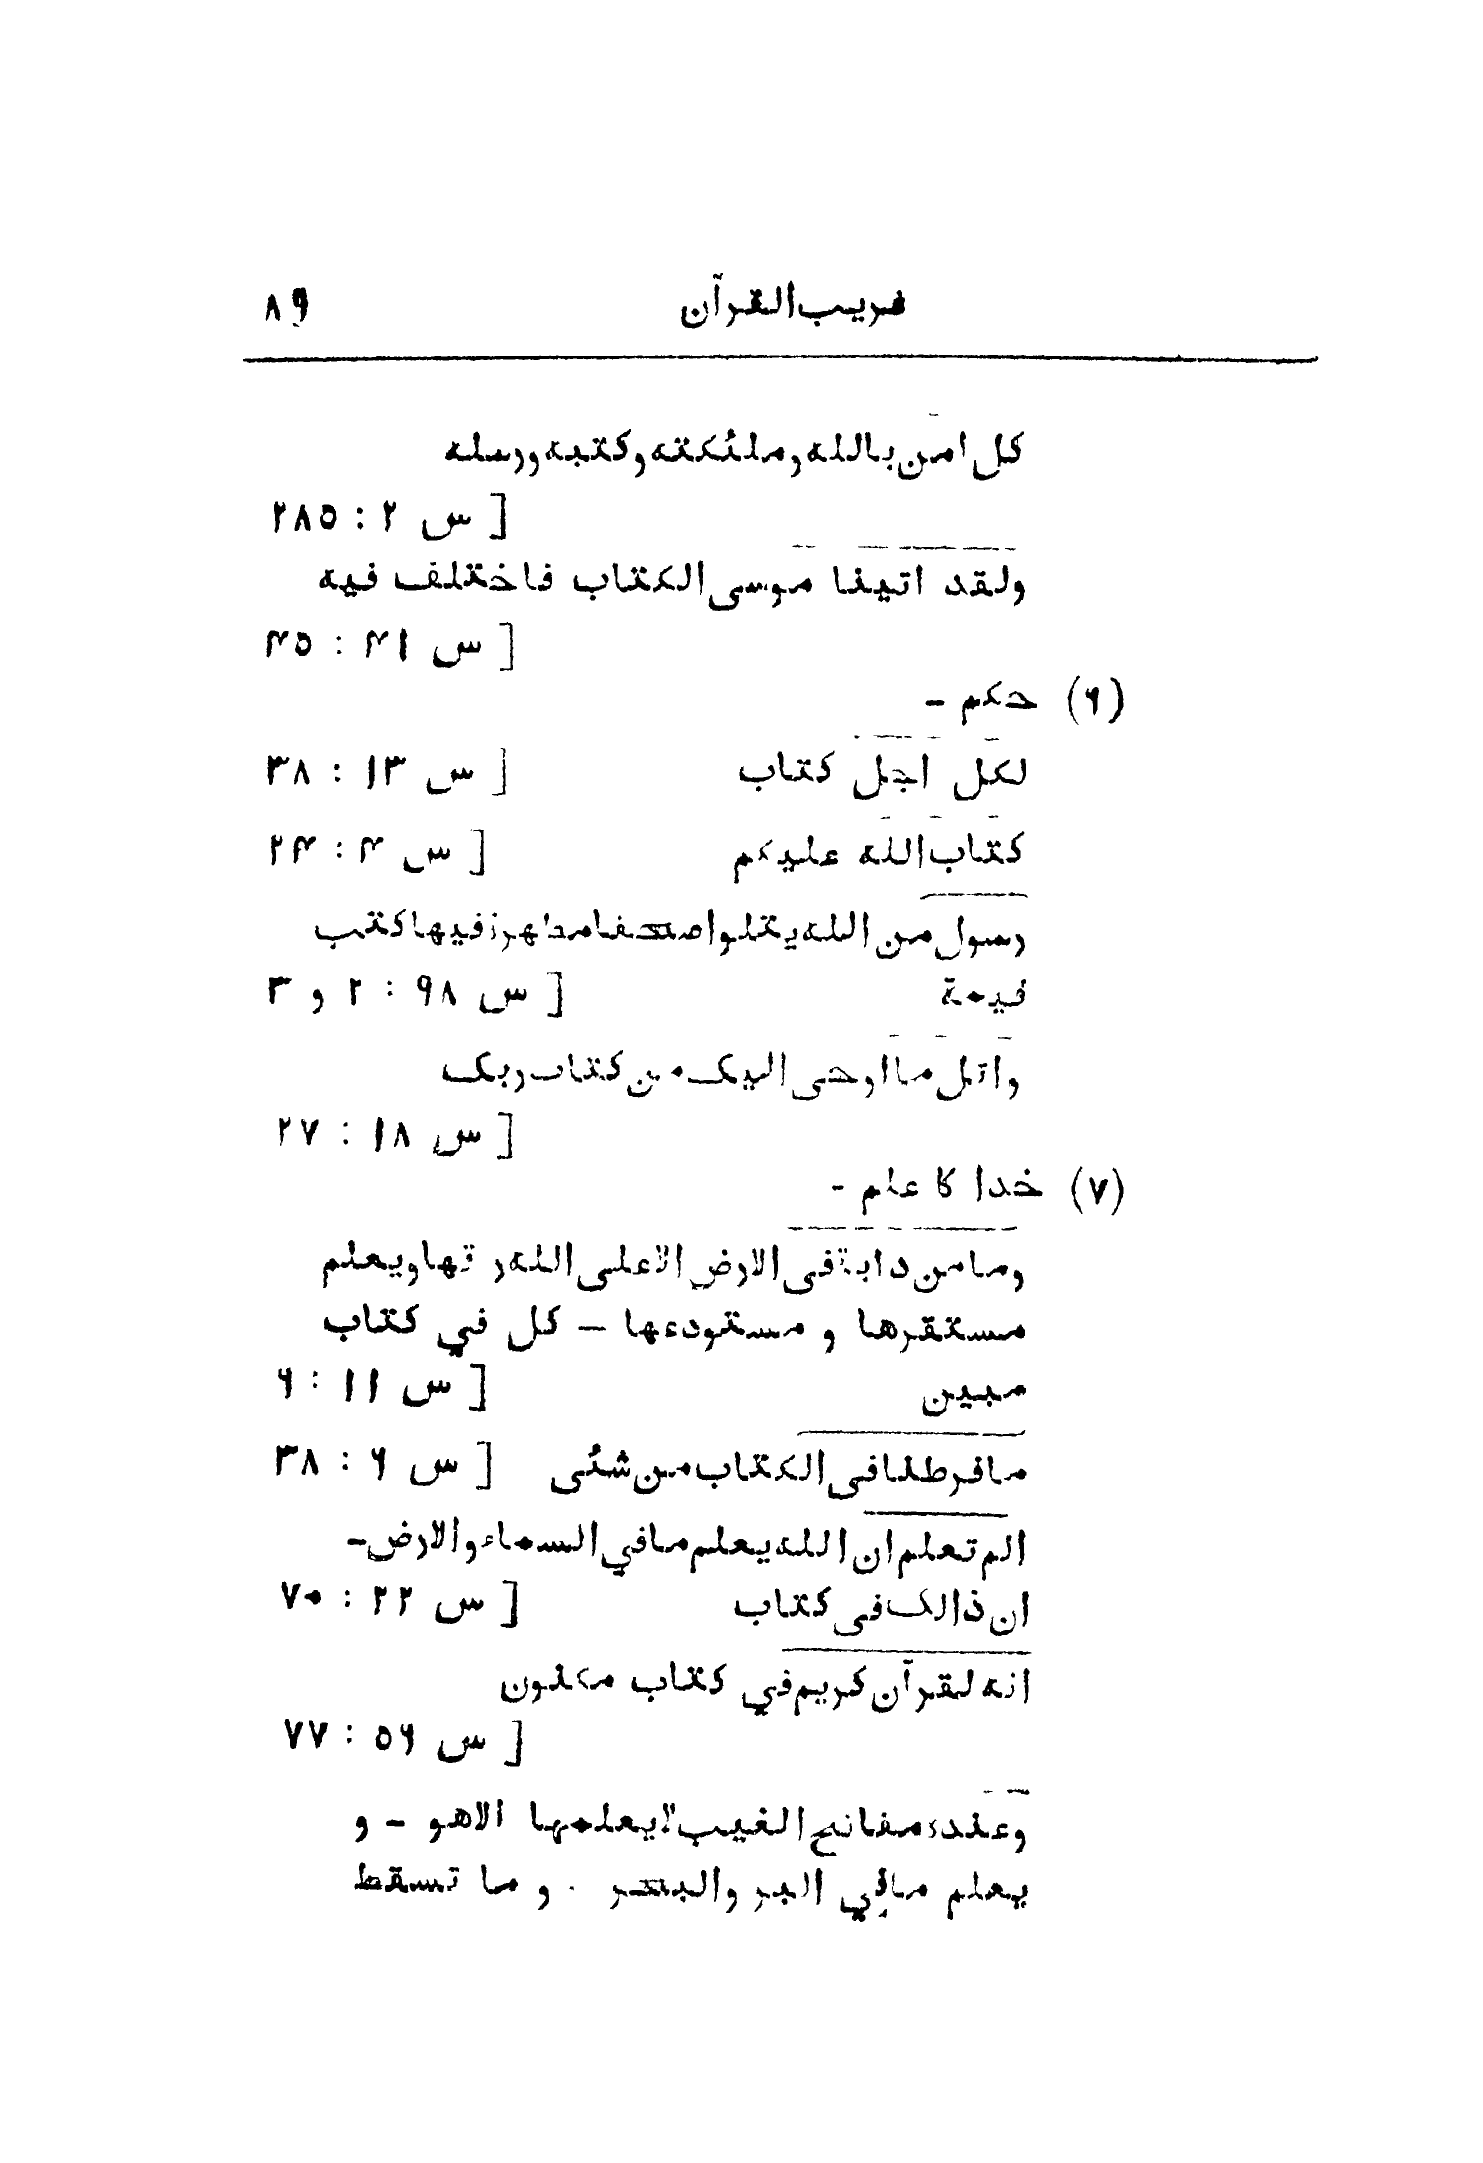 غریب القرآن ۸۹
کل امن بالله وملئکته وکتبه ورسله
[س ۲ : ۲۸۵
ولقد اتینا موسی الکتاب فاختلف فیه
[س ۴۱ : ۴۵
(۶) حکم -
لکل اجل کتاب [س ۱۳ : ۳۸
کتاب الله علیکم [س ۴ : ۲۴
رسول من الله یتلوا صحفا مطهرة فیها کتب
قیمة [س ۹۸ : ۲ و ۳
واتل ما اوحی الیک من کتاب ربک
[س ۱۸ : ۲۷
(۷) خدا کا علم -
وما من دابة فی الارض الا علی الله رزقها ویعلم
مستقرها و مستودعها - کل في کتاب
مبین [س ۱۱ : ۶
ما فرطنا فی الکتاب من شئی [س ۶ : ۳۸
الم تعلم ان الله یعلم ما في السماء والارض-
ان ذالک فی کتاب [س ۲۲ : ۷۰
انه لقرآن کریم في کتاب مکنون
[س ۵۶ : ۷۷
وعنده مفاتح الغیب لا یعلمها الا هو - و
یعلم ما في البر والبحر . و ما تسقط